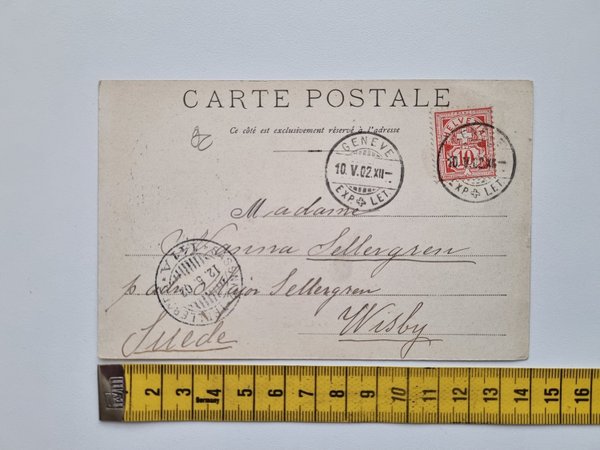 CARTE POSTALE
Ce côté est exclusivement réservé à l'adresse
GENÈVE
10. V. 02. XII
EXP. LET.
HELVETIA
10
GENÈVE
10. V. 02. XII
EXP. LET.
Madame
Hanna Sellergren
p. adr. Major Sellergren
Wisby
Suède
12 5 02
2 3 4 5 6 7 8 9 10 11 12 13 14 15 16
Germany